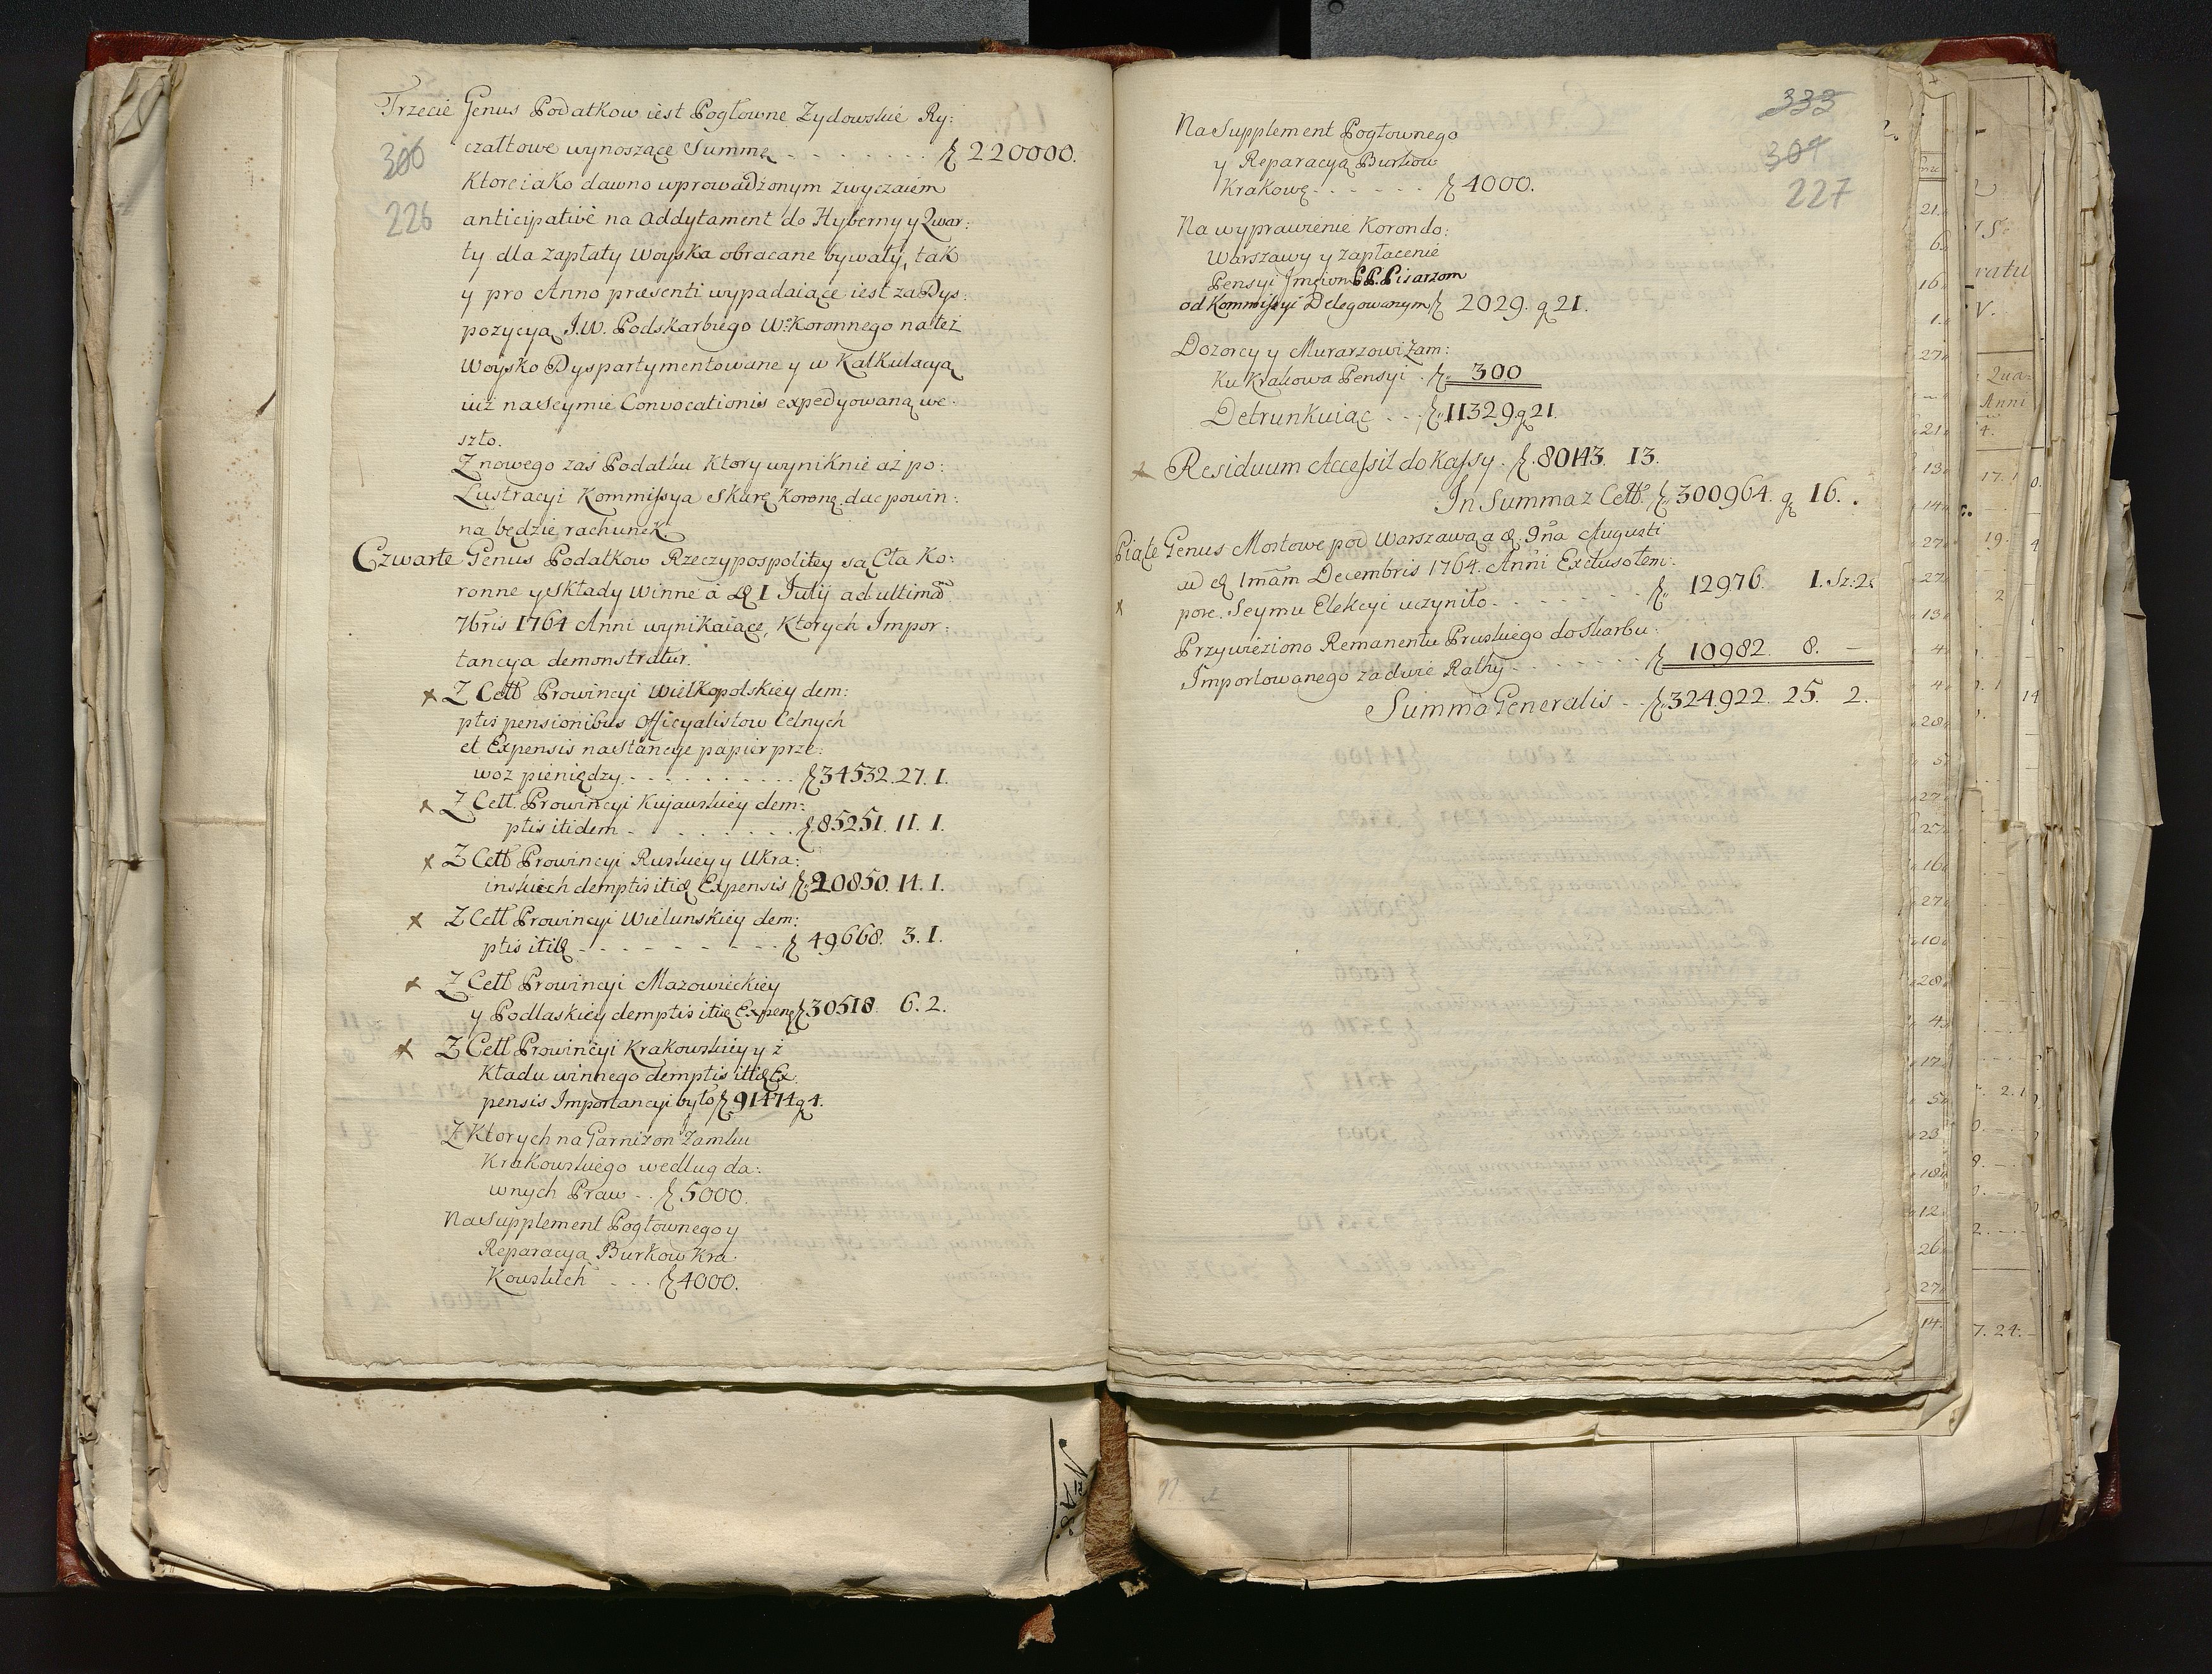 Trzecie Genus Podatkow iest Pogłowne Zydowskie Ry:
czałtowe wynoszące Summę - - - - - - - - ƶ 220000.
306
Ktore iako dawno wprowadzonym zwyczaiem
226
anticipativè na Addytament do Hyberny y Qwar:
ty dla zapłaty Woyska obracane bywały, tak
y pro Anno præsenti wypadaiące iest za Dys:
pozycyą J.W. Podskarbiego W.º Koronnego na też
Woysko Dyspartymentowane y w Kalkulacyą
iuż na Seymie Convocationis expedyowaną we:
szło.
Z nowego zaś Podatku Ktory wyniknie aż po:
Lustracyi Kommissya Skarę. Koroną. dac powin:
na będzie rachunek.
Czwarte Genus Podatkow Rzeczypospolitey są Cła Ko:
ronne y Składy Winne à dę I Julij ad ultimã
7bris 1764 Anni wynikaiące, Ktorych Impor:
tancya demonstratur.
Z Cełł Prowincyi Wielkopolskiey dem:
ptis pensionibus Officyalistow Celnych
et Expensis na Stancye papier prze:
woz pieniędzy - - - - - - - - - - ƶ 34532. 27. I.
Z Cełł. Prowincyi Kujawskiey dem:
ptis itidem - - - - - - - - ƶ 85251. 11. I.
Z Cełł Prowincyi Ruskiey y Ukra:
inskiech demptis itidę Expensis ƶ 20850. 14. I.
Z Cełł Prowincyi Wielunskiey dem:
ptis itidę - - - - - - - - - ƶ 49668. 3. I.
Z Cełł Prowincyi Mazowieckiey
y Podlaskiey demptis itidę Expenę ƶ 30518. 6. 2.
Z Cełł Prowincyi Krakowskiey y z
Kładu winnego demptis itidę Ex
pensis Importancyi było ƶ 91474 gę 4.
Z Ktorych na Garnizon Zamku
Krakowskiego według da:
wnych Praw - - ƶ 5000.
Na Supplement Pogłownego y
Reparacyą Burkow Kra:
Kowskich - - - ƶ 4000.
333
304
227
Na Supplement Pogłownego
y Reparacyą Burkow
Krakowę - - - - - - ƶ 4000.
Na wyprawienie Korondo:
Warszawy y zapłacenie
Pensyi Jmciom PP. Pisarzom
od Kommissyi Delegowanym ƶ 2029. gę 21.
Dozorcy y Murarzowi Zam:
Ku Krakowa Pensyi . ƶ 300
Detrunkuiąc - - - ƶ 11329 gę 21.
Residuum Accessit do Kassy. ƶ. 80143. 13.
In Summa z Cełł ƶ 300964. gę 16.
Piąte Genus Mostowe pod Warszawą a dę. 9na Augusti
ad dę 1mam Decembris 1764. Anni Excluso tem:
pore. Seymu Elekcyi uczyniło - - - - - - - ƶ 12976. I. Sz: 2.
Przywieziono Remanentu Pruskiego do Skarbu:
Importowanego za dwie Rathy - - - - - - - ƶ 10982. 8. —
Summa Generalis - - ƶ 324922. 25. 2.